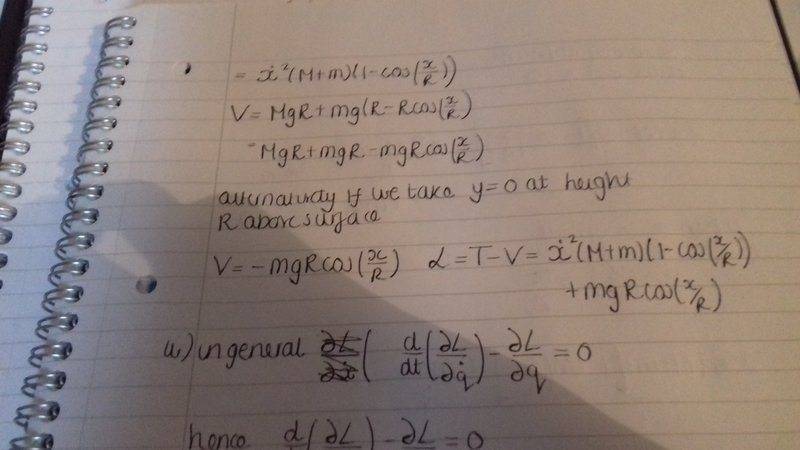 = ẋ²(M+m)(1-cos(x/R))
V = MgR + mg(R - Rcos(x/R)
= MgR + mgR - mgRcos(x/R)
alternatively if we take y=0 at height
R above surface
V = -mgRcos(x/R) L = T-V = ẋ²(M+m)(1-cos(x/R))
+ mgRcos(x/R)
ii) in general d/dt(∂L/∂q̇) - ∂L/∂q = 0
hence d/(∂L) - ∂L = 0